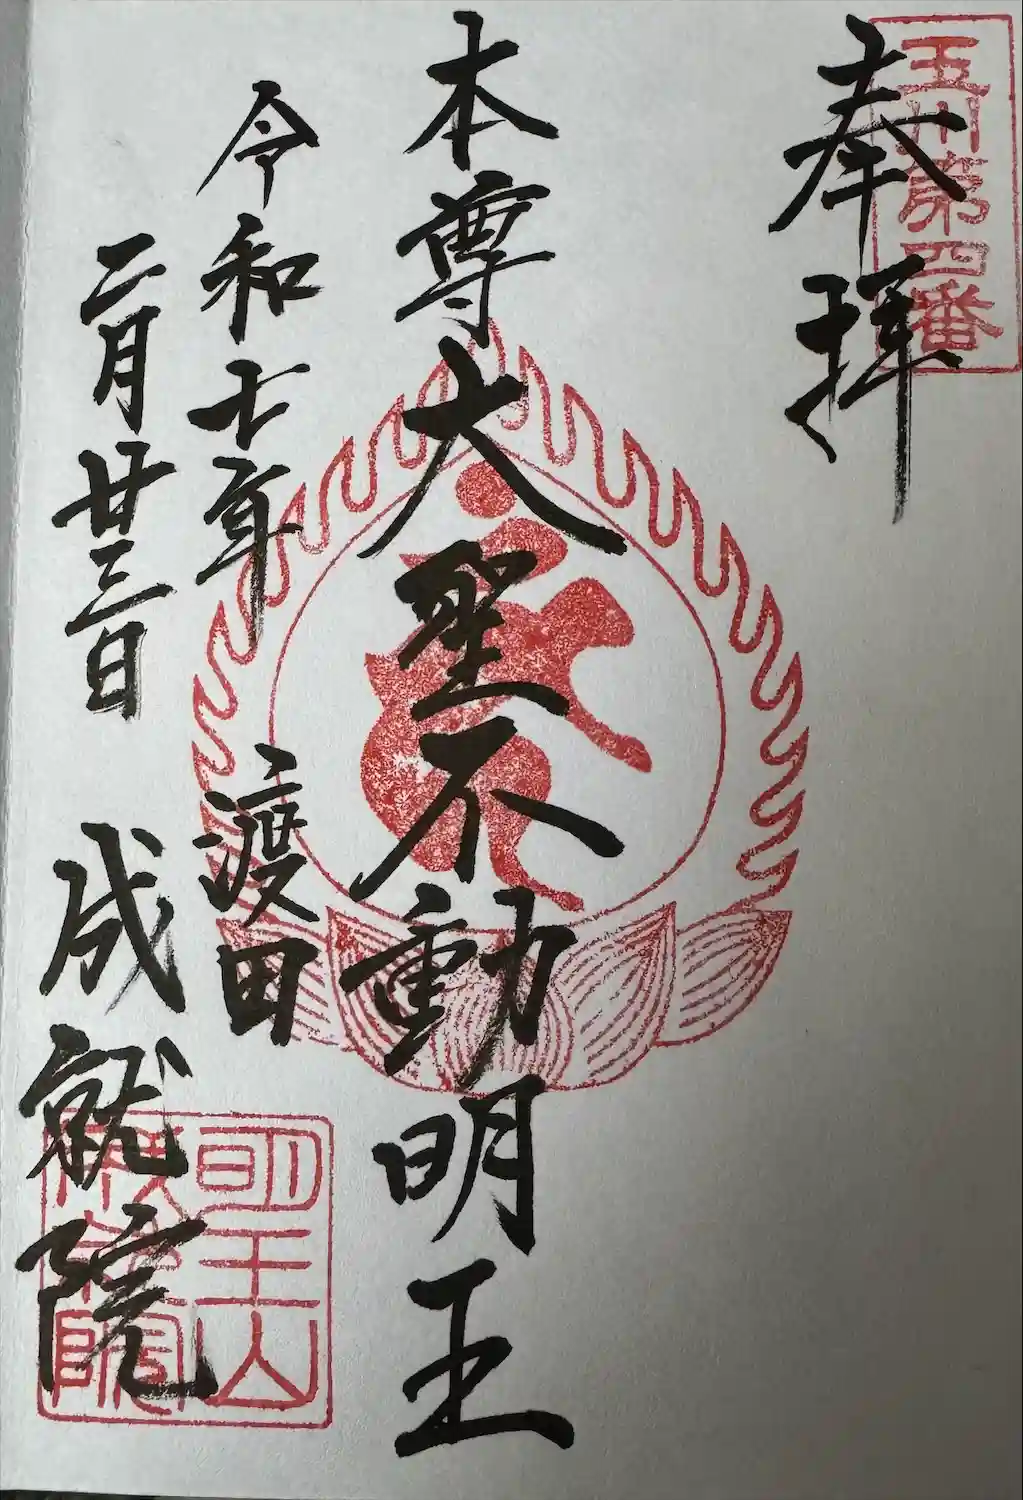 玉川第四番
奉拝
本尊大聖不動明王
令和七年
二月廿三日
渡田
成就院
明王山